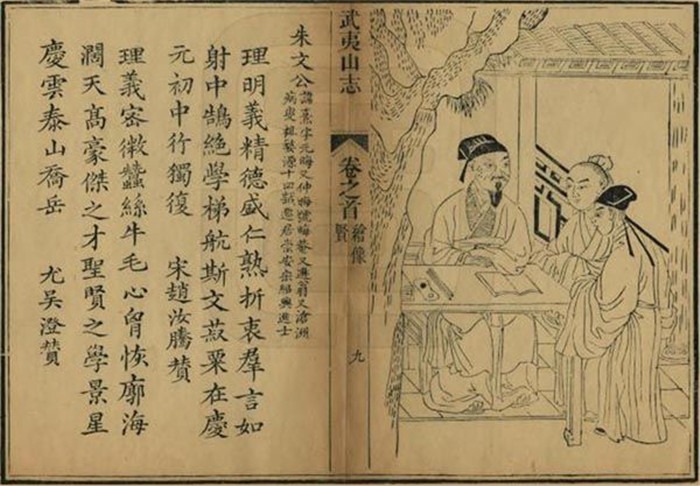 武夷山志
卷之首
繪像
賢
九
朱文公
諱熹字元晦又仲晦號晦菴又遯翁又滄洲
病叟祖婺源十四居崇安宋紹興進士
理明義精德盛仁熟折衷羣言如
射中鵠絕學梯航斯文菽粟在慶
元初中行獨復 宋趙汝騰贊
理義密微蠶絲牛毛心胷恢廓海
濶天髙豪傑之才聖賢之學景星
慶雲泰山喬岳 元吳澄贊